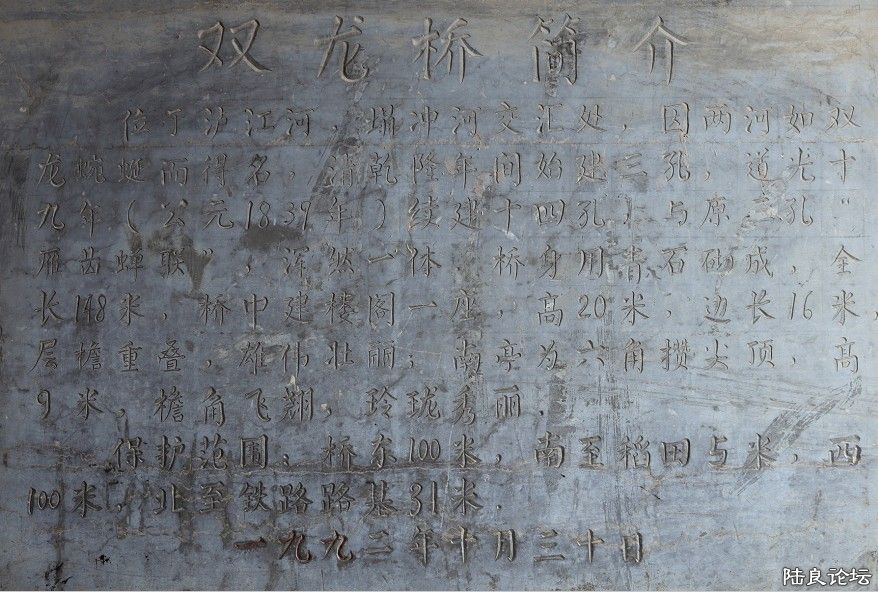 双龙桥简介
位于泸江河，塌冲河交汇处，因两河如双
龙蜿蜒而得名，清乾隆年间始建三孔，道光十
九年（公元1839年）续建十四孔，与原三孔“
雁齿蝉联”，浑然一体．桥身用青石砌成，全
长148米，桥中建楼阁一座，高20米，边长16米，
层檐重叠，雄伟壮丽；南亭为六角攒尖顶，高
9米，檐角飞翔，玲珑秀丽．
保护范围：桥东100米，南至稻田 米，西
100米，北至铁路路基31米．
一九九二年十月三十日
陆良论坛